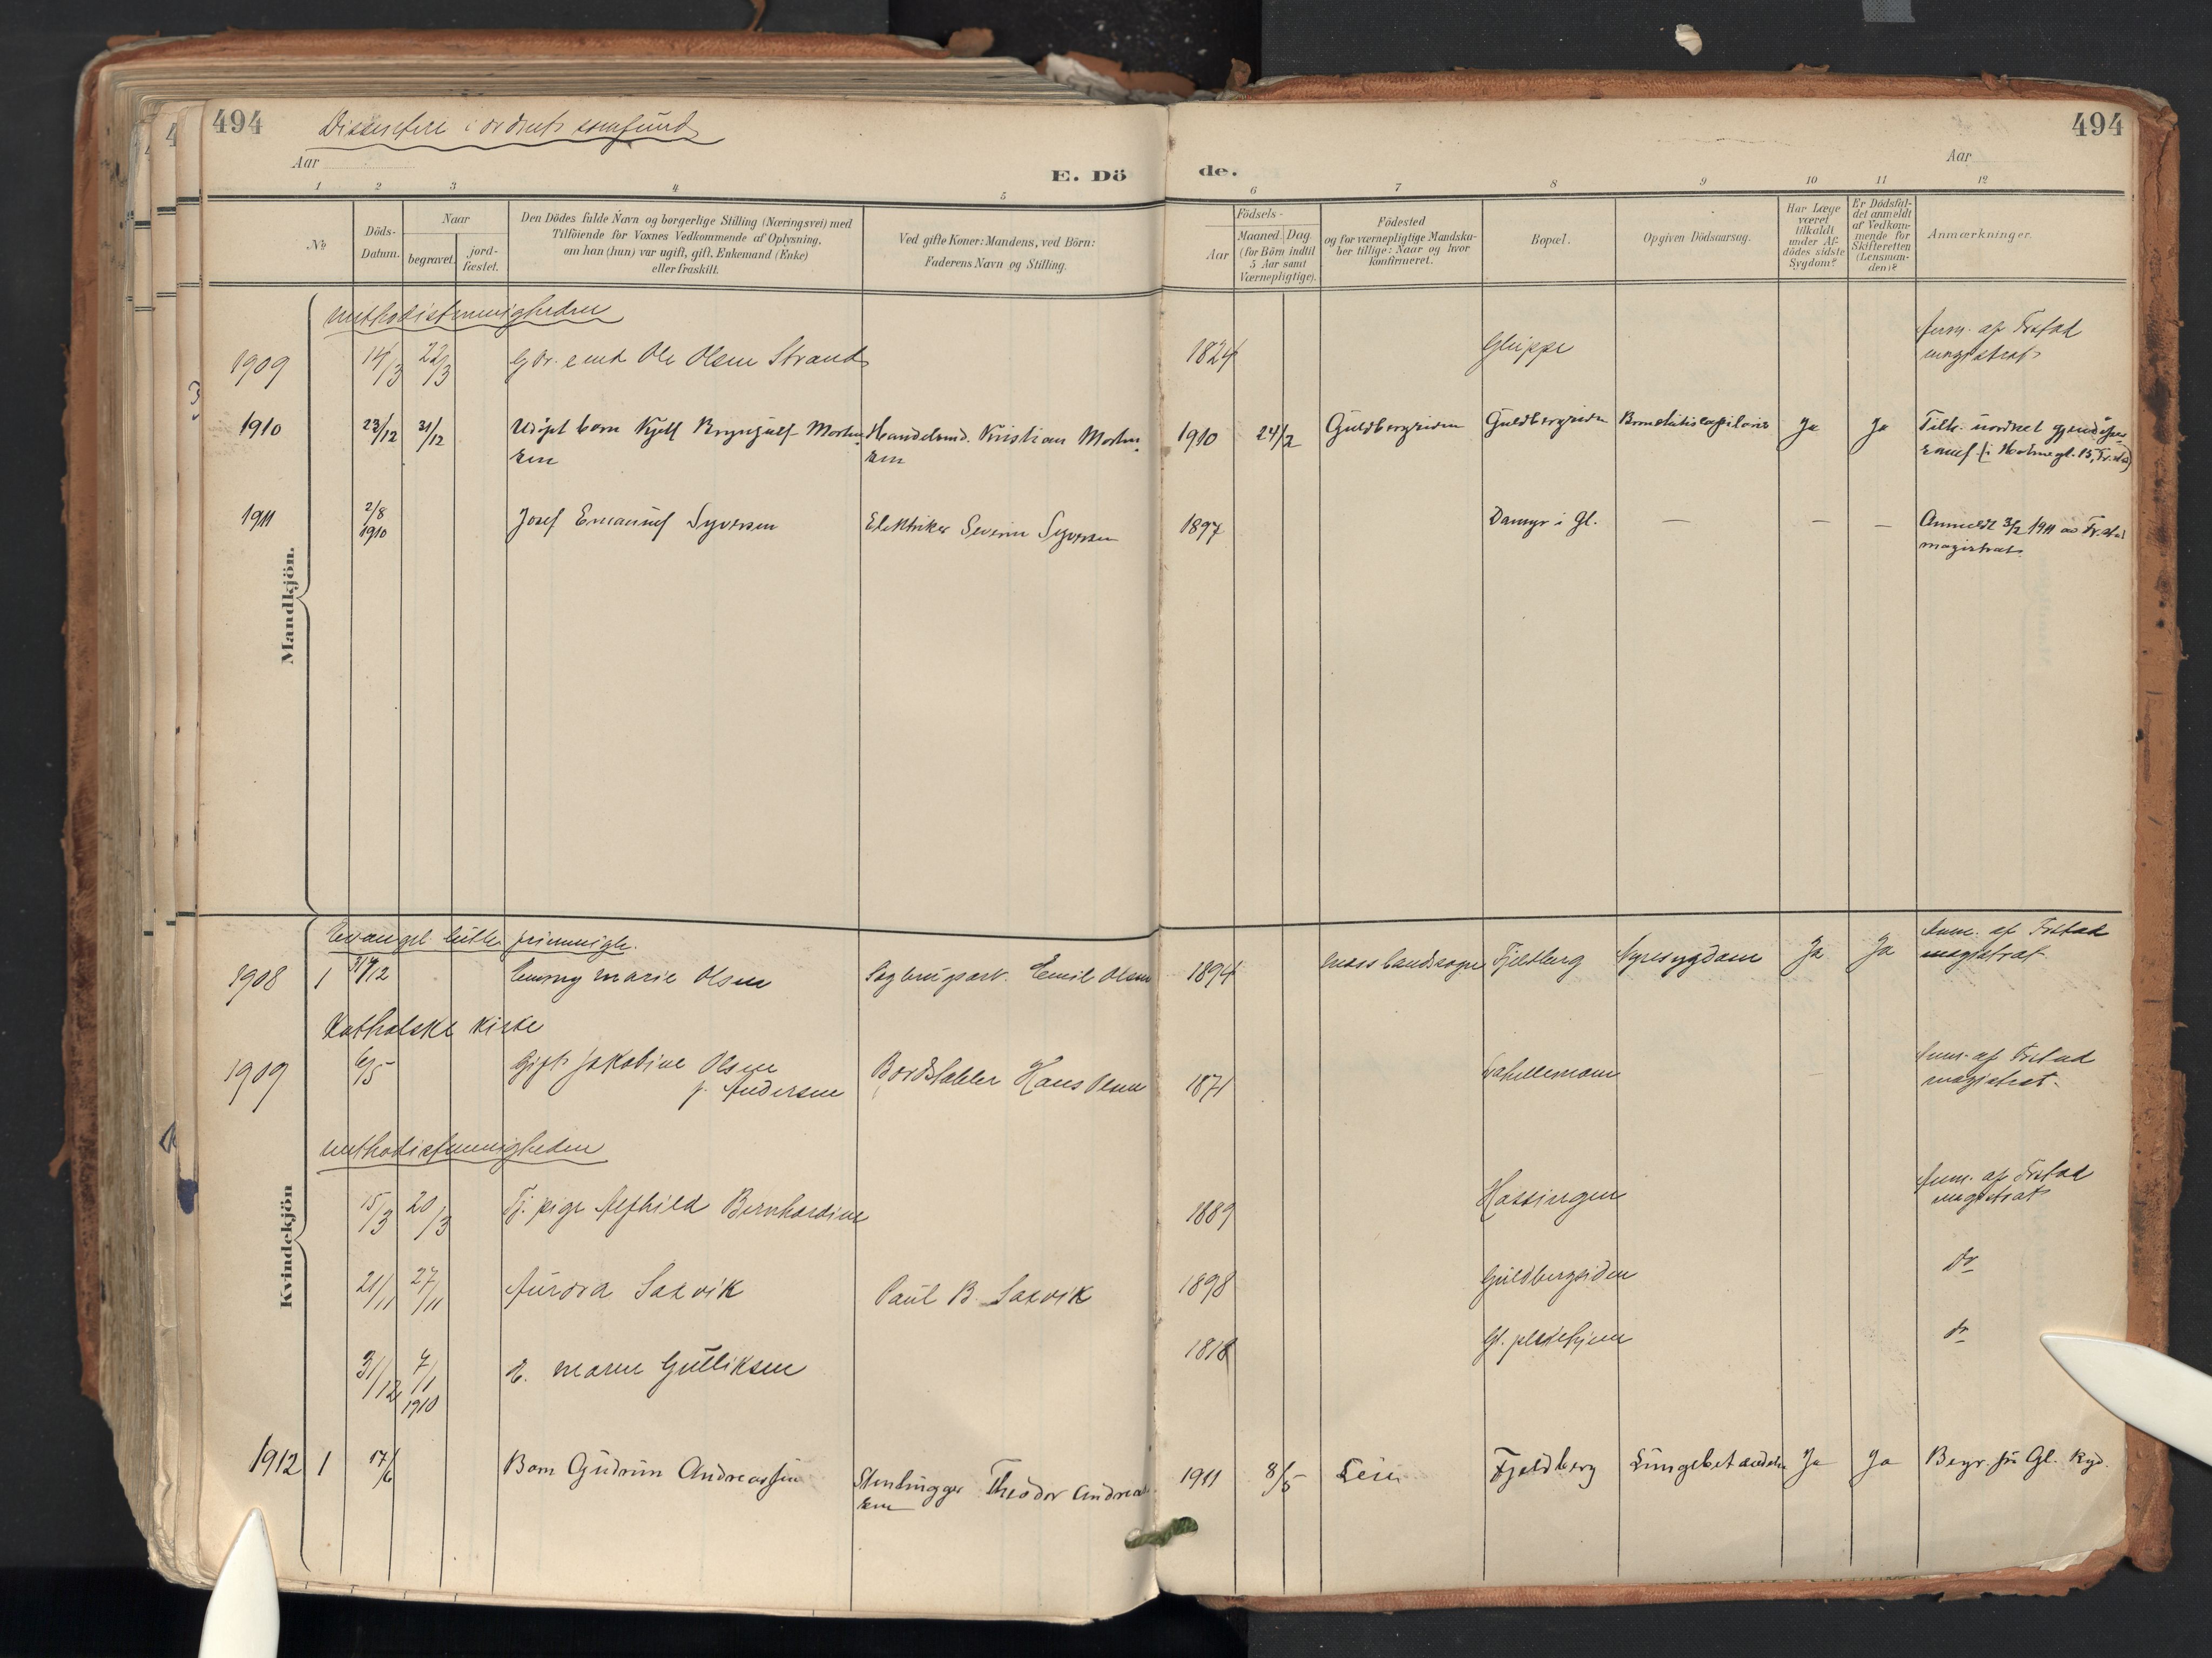 494
Dissentere i ordnet samfund
Aar
E. Dö
de.
Aar
494
1 2 3 4 5 6 7 8 9 10 11 12
No
Döds-
Datum.
Naar
begravet.
jord-
fæstet.
Den Dödes fulde Navn og borgerlige Stilling (Næringsvei) med
Tilföiende for Voxnes Vedkommende af Oplysning,
om han (hun) var ugift, gift, Enkemand (Enke)
eller fraskilt.
Ved gifte Koner: Mandens, ved Börn:
Faderens Navn og Stilling.
Födsels-
Aar
Maaned. Dag
(for Börn indtil
5 Aar samt
Værnepligtige).
Födested
og for værnepligtige Mandska-
ber tillige: Naar og hvor
konfirmeret.
Bopæl.
Opgiven Dödsaarsag.
Har Læge
været
tilkaldt
under Af-
dödes sidste
Sygdom?
Er Dödsfal-
det anmeldt
af Vedkom-
mende for
Skifteretten
(Lensman-
den)?
Anmærkninger.
Mandkjön.
Methodistmenigheden
1909 14/3 22/3 Ole Olsen Strand 1824 Glippe Anm. af Frstad
magistrat
1910 23/12 31/12 Udöpt barn Kjell Brynjulf Morten- Handelsmd. Kristian Morten- 1910 24/2 Guldbergsiden Guldbergsiden Bronchitis capilaris Ja Ja Tilh.
sen sen
1911 2/8 Josef Emanuel Syversen Elektriker Severin Syversen 1897 Damyr i Gl. — — — Anmeldt 3/2 1911 av Fr.stad
1910 magistrat
Kvindekjön
Evangel. luth. frimenigh.
1908 1 31/12 Emmy Marie Olsen Sagbrugsarb. Emil Olsen 1894 Moss landsogn Fjeldberg Nyresygdom Ja Ja Anm. af Frstad
magistrat
Katholske Kirke
1909 6/5 Gift Jakobine Olsen Bordstabler Hans Olsen 1871 Anm. af Frstad
f. Andersen magistrat.
Methodistmenigheden
15/3 20/3 Tj. pige Alfhild Bernhardine 1889 Hassingen Anm. af Frstad
magistrat
21/11 27/11 Aurora Saxvik Paul B. Saxvik 1898 Guldbergsiden Do
31/12 7/1 E. Maren Gulliksen 1818 Gl. pleiehjem do
1910
1912 1 17/6 Barn Gudrun Andreassen Stenhugger Theodor Andreas- 1911 8/5 Leie Fjeldberg Lungebetændelse Ja Ja Begr. fra Gl. Kgd.
sen